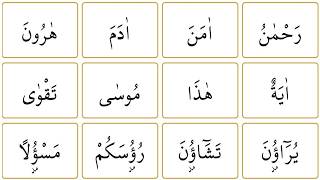 رَحْمٰنُ اٰمَنَ اٰدَمَ هٰرُونَ
اٰيَةٌ هٰذَا مُوسٰى تَقْوٰى
يُرَٓاؤُ۫نَ تَشَٓاؤُ۫نَ رُؤُ۫سَكُمْ مَسْؤُ۫لًا